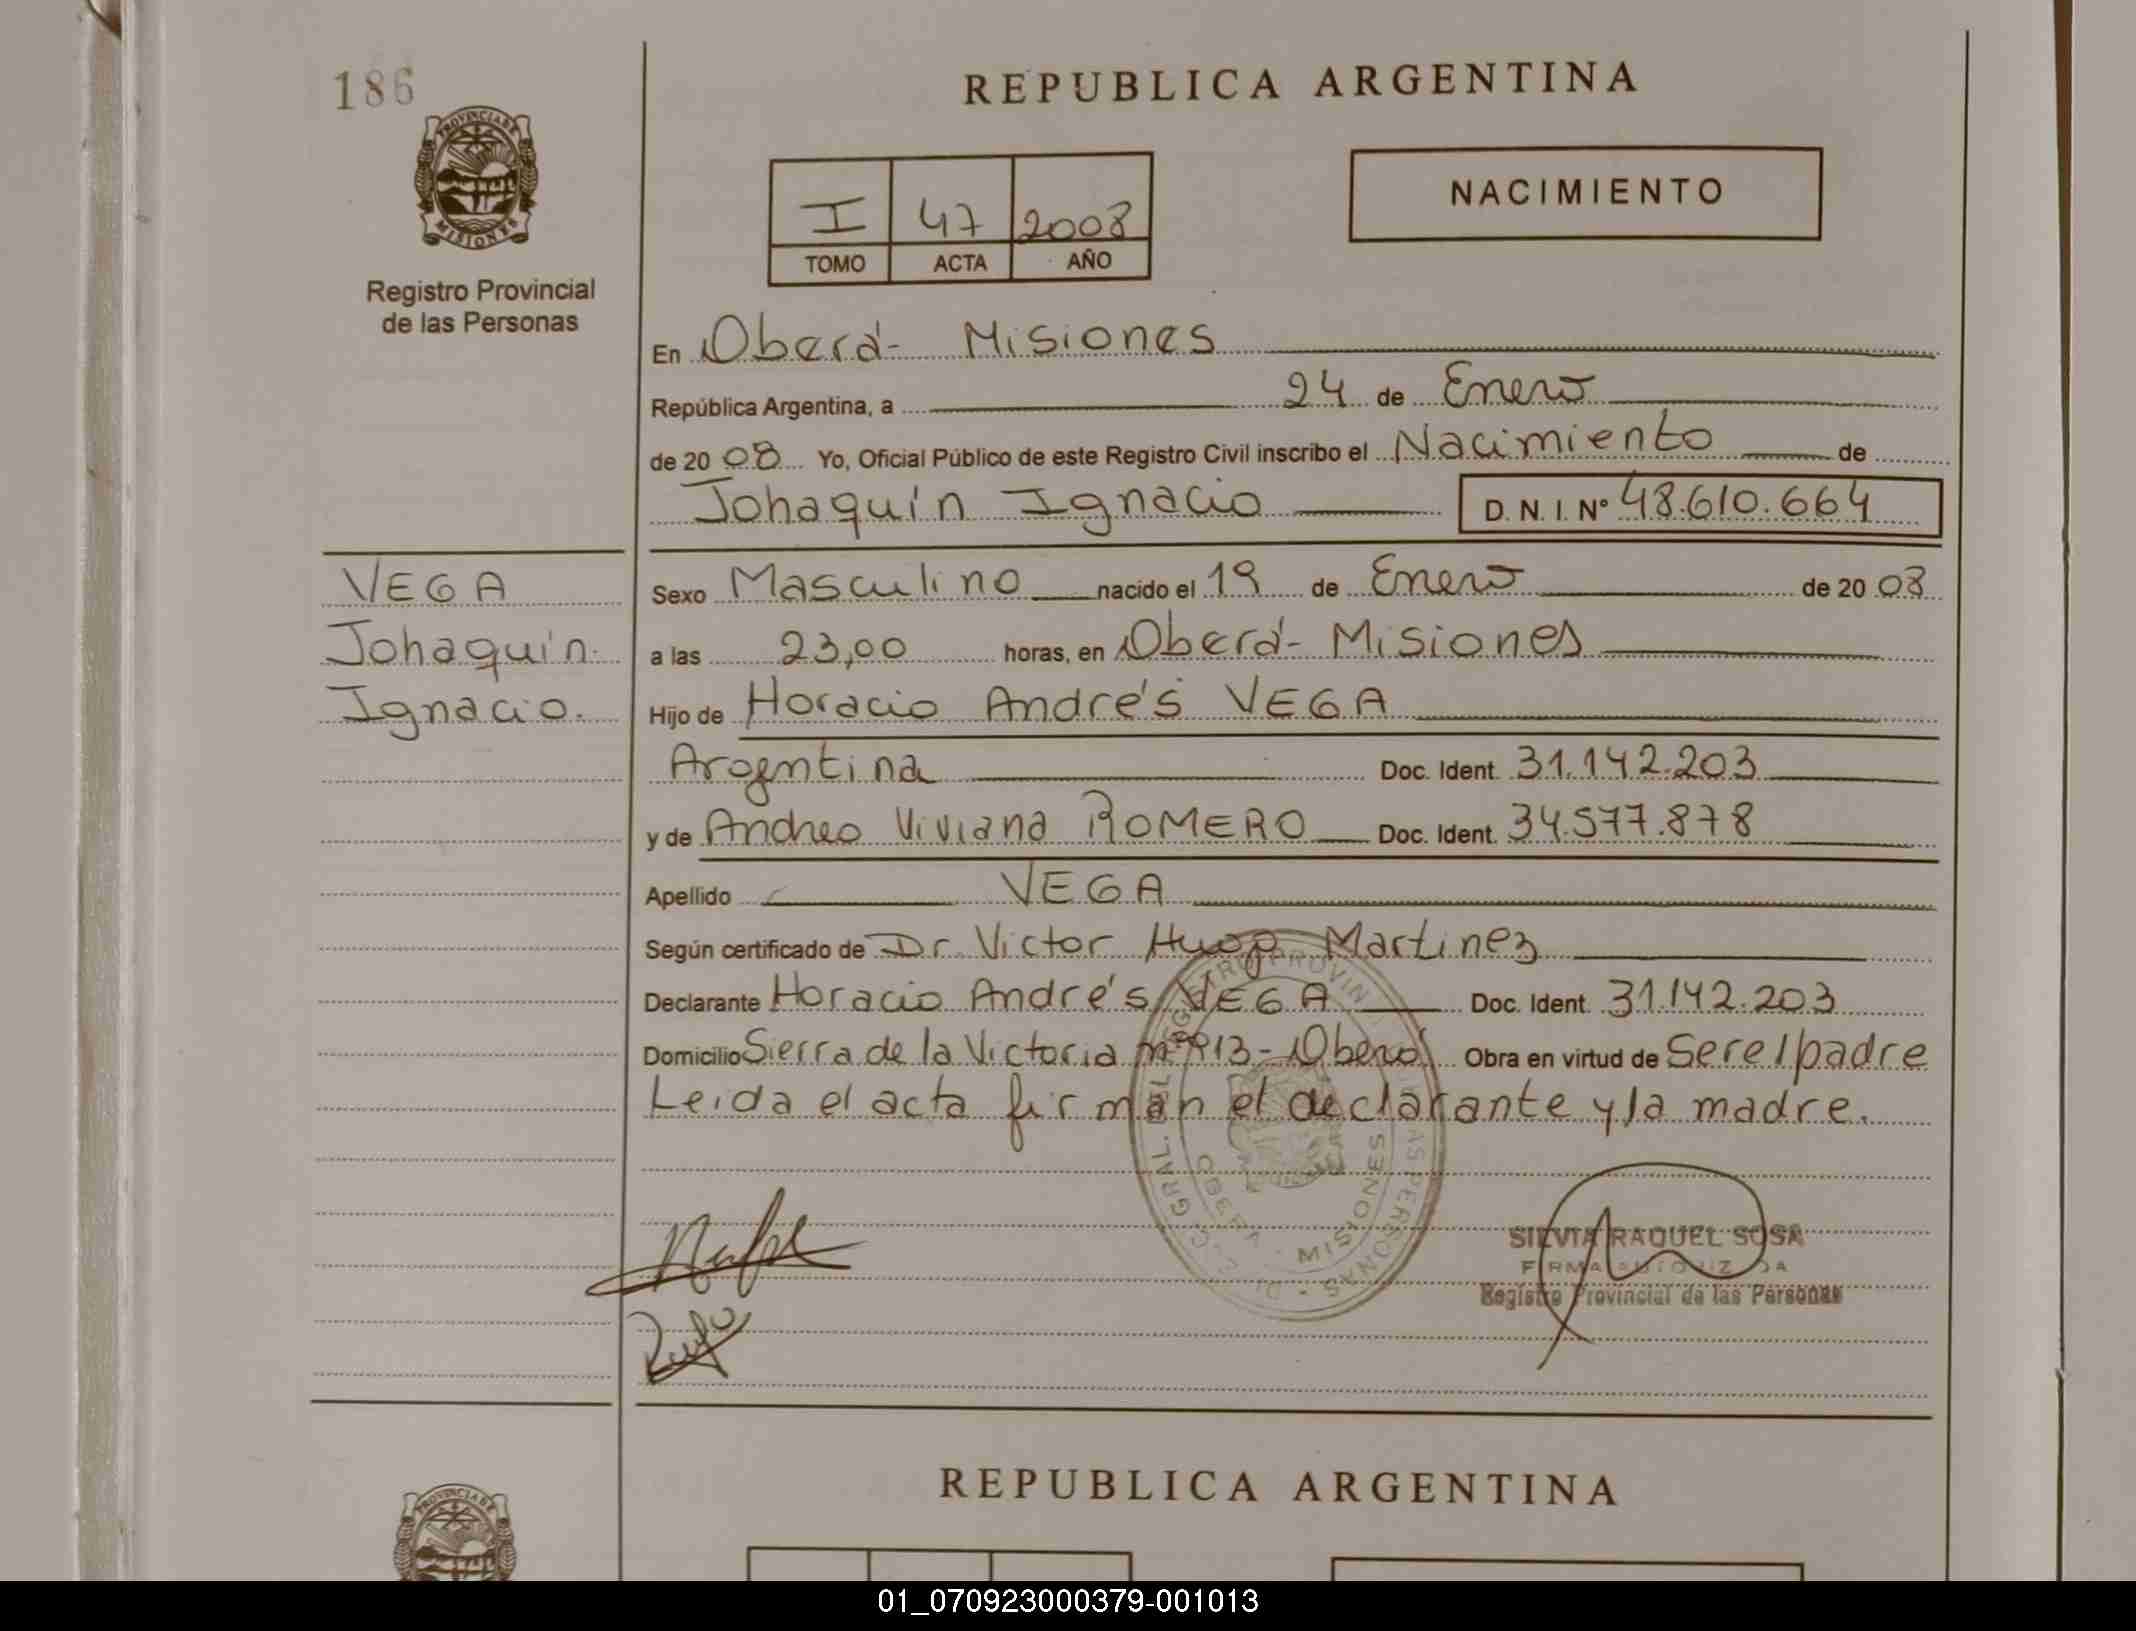 186
REPUBLICA ARGENTINA
PROVINCIA DE
MISIONES
Registro Provincial
de las Personas
I 47 2008
TOMO ACTA AÑO
NACIMIENTO
En Oberá - Misiones
República Argentina, a 24 de Enero
de 20 08 Yo, Oficial Público de este Registro Civil inscribo el Nacimiento de
Johaquín Ignacio D. N. I. Nº 48.610.664
VEGA
Johaquín
Ignacio.
Sexo Masculino nacido el 19 de Enero de 20 08
a las 23,00 horas, en Oberá - Misiones
Hijo de Horacio Andrés VEGA
Argentina Doc. Ident. 31.142.203
y de Andrea Viviana ROMERO Doc. Ident. 34.577.878
Apellido VEGA
Según certificado de Dr. Victor Hugo Martinez
Declarante Horacio Andrés VEGA Doc. Ident. 31.142.203
Domicilio Sierra de la Victoria Oberá Obra en virtud de Ser el padre
Leida el acta firman el declarante y la madre.
MISIONES
SILVIA RAQUEL SOSA
FIRMA AUTORIZADA
Registro Provincial de las Personas
REPUBLICA ARGENTINA
PROVINCIA DE
01_070923000379-001013